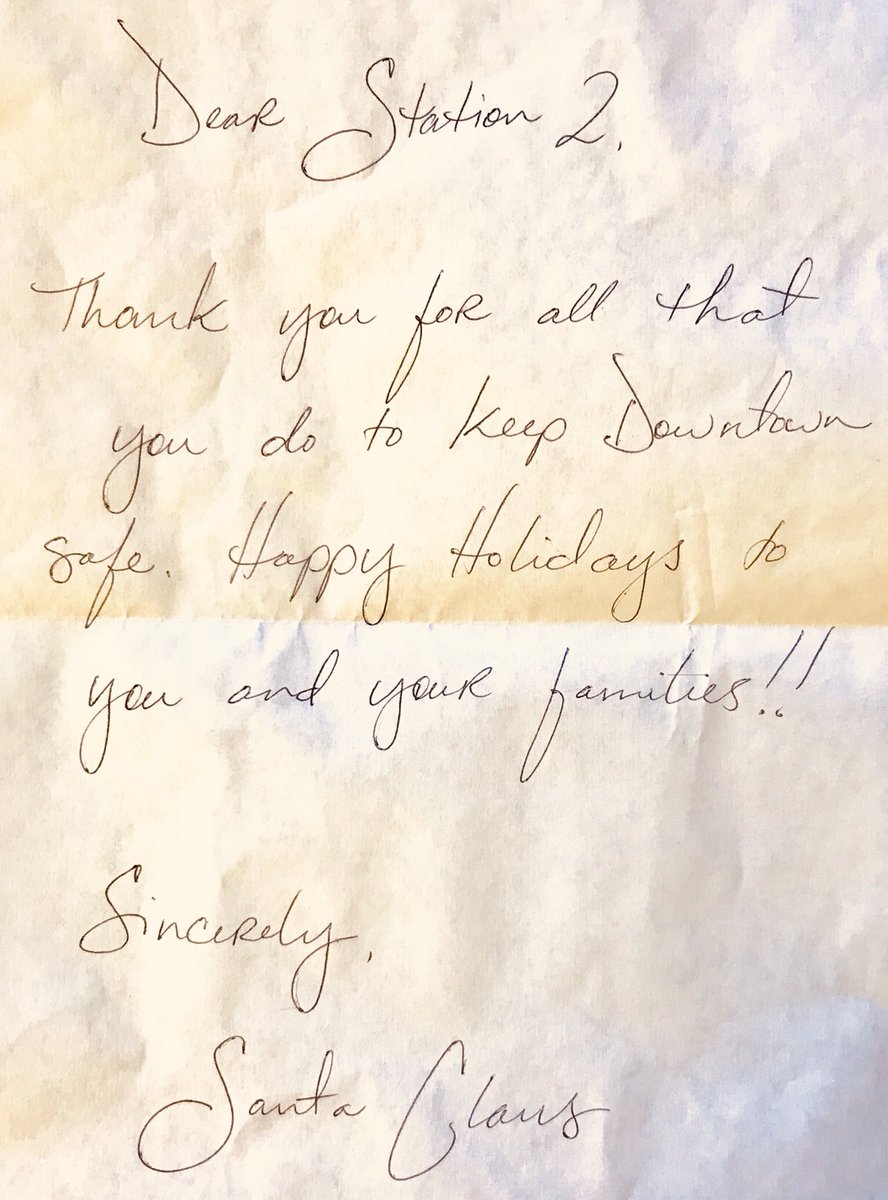 Dear Station 2,
Thank you for all that
you do to keep Downtown
safe. Happy Holidays to
you and your families!!
Sincerely,
Santa Claus